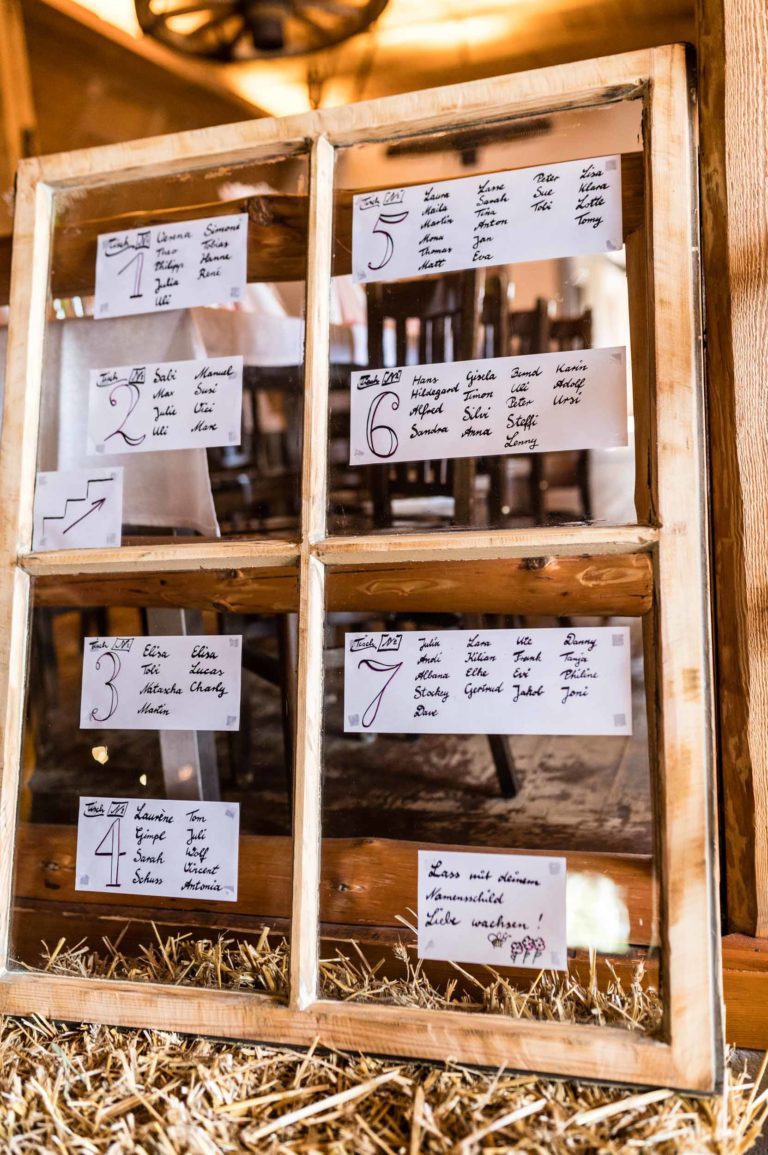 Tisch Nr
1
Verena Simone
Theo Tobias
Philipp Hanna
Julia René
Uli
Tisch Nr
2
Sabi Manuel
Max Susi
Julie Vici
Uli Marc
Tisch Nr
3
Elisa Elisa
Tobi Lucas
Natascha Charly
Martin
Tisch Nr
4
Laurène Tom
Gimpl Juli
Sarah Wolf
Schuss Vincent
Antonia
Tisch Nr
5
Laura Lasse Peter Lisa
Maila Sarah Sue Klara
Martin Tina Tobi Lotte
Mona Anton Tomy
Thomas Jan
Matt Eva
Tisch Nr
6
Hans Gisela Bernd Karin
Hildegard Timon Uli Adolf
Alfred Silvi Peter Ursi
Sandra Anna Steffi
Lenny
Tisch Nr
7
Julia Lara Ute Danny
Andi Kilian Frank Tanja
Albana Elke Evi Philine
Stockey Gertrud Jakob Joni
Dave
Lass mit deinem
Namensschild
Liebe wachsen!